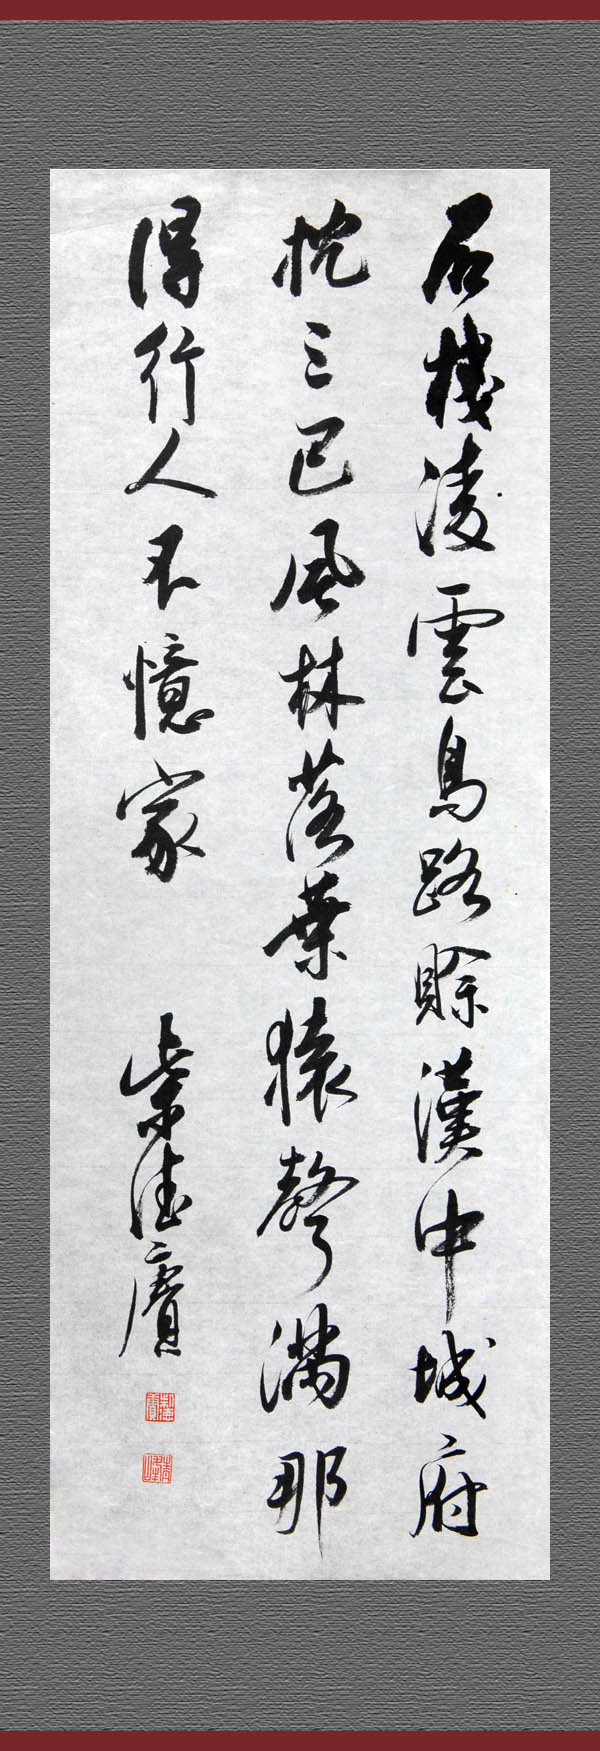 石棧凌雲鳥路賒漢中城府
枕三巴風林落葉猿聲滿那
得行人不憶家
柴德賡